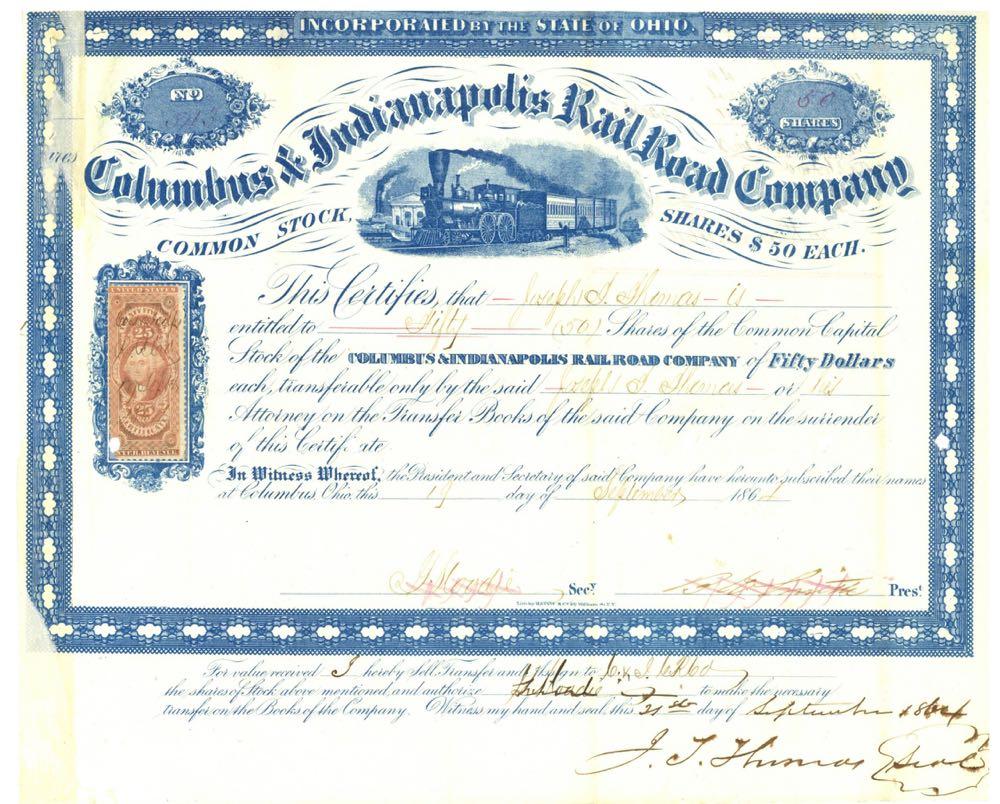 INCORPORATED BY THE STATE OF OHIO.
No
50
SHARES
Columbus & Indianapolis Rail Road Company
COMMON STOCK, SHARES $50 EACH.
UNITED STATES
25
25
INTER. REVENUE
This Certifies, that Joseph T. Thomas is
entitled to Fifty (50) Shares of the Common Capital
Stock of the COLUMBUS & INDIANAPOLIS RAIL ROAD COMPANY of Fifty Dollars
each, transferable only by the said Joseph T. Thomas or his
Attorney on the Transfer Books of the said Company on the surrender
of this Certificate
In Witness Whereof, the President and Secretary of said Company have hereunto subscribed their names
at Columbus Ohio, this 19 day of September 1864
Secy. Prest.
For value received I hereby Sell Transfer and Assign to
the shares of Stock above mentioned, and authorize to make the necessary
transfer on the Books of the Company. Witness my hand and seal, this 21st day of September 1864
J. T. Thomas Seal